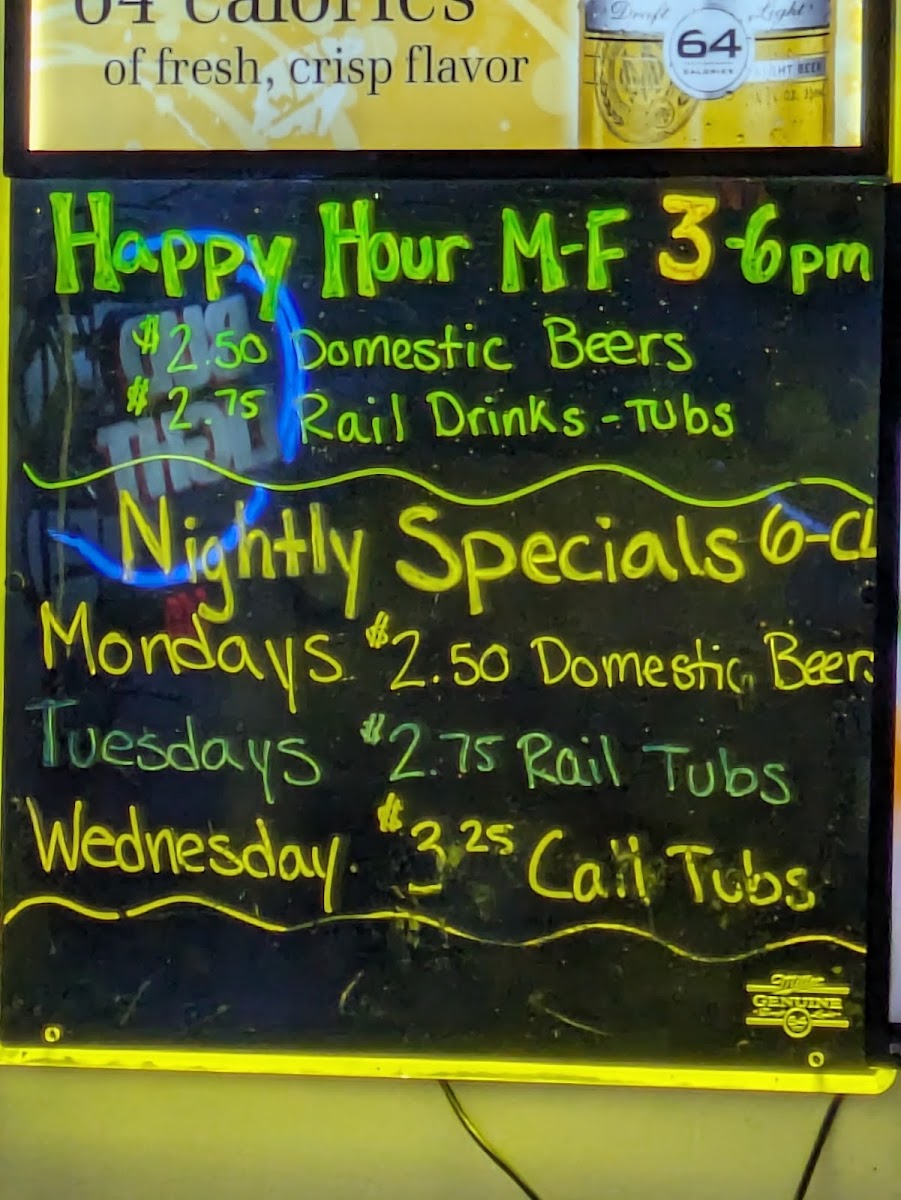 64 calories
of fresh, crisp flavor
Draft Light
64
CALORIES
LIGHT BEER
Happy Hour M-F 3-6pm
$2.50 Domestic Beers
$2.75 Rail Drinks - Tubs
Nightly Specials 6-CL
Mondays $2.50 Domestic Beers
Tuesdays $2.75 Rail Tubs
Wednesday $3.25 Call Tubs
Miller
GENUINE